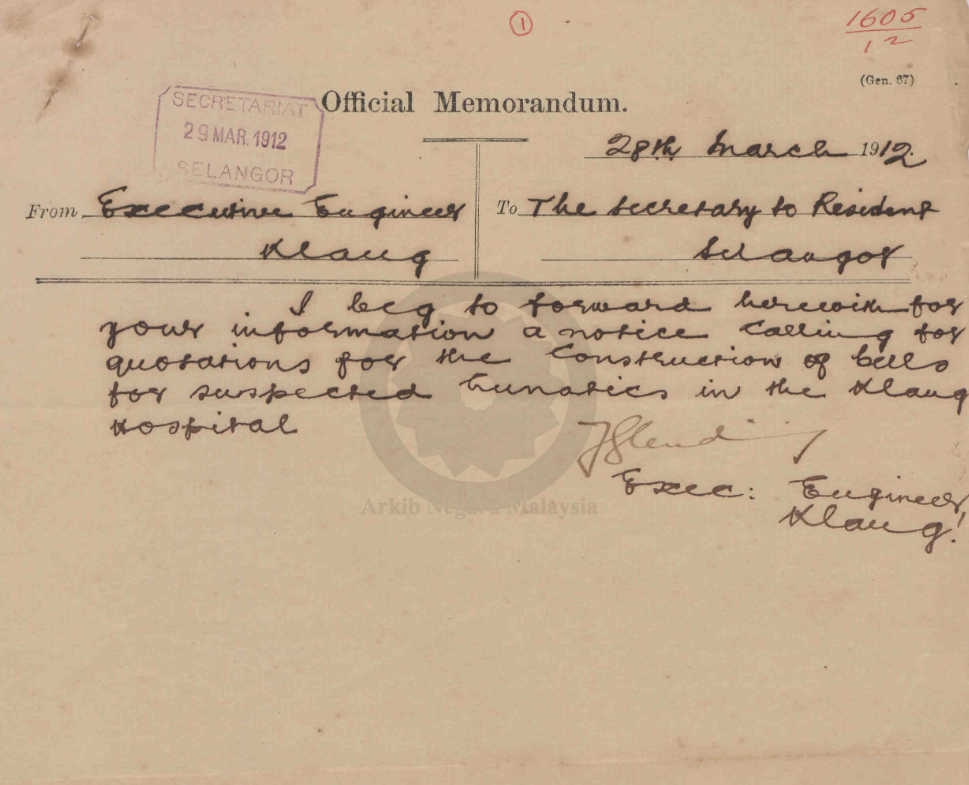 1
1605
12
(Gen. 67)
Official Memorandum.
SECRETARIAT
29 MAR. 1912
SELANGOR
28th March 1912.
From Executive Engineer
Klang
To The Secretary to Resident
Selangor
I beg to forward herewith for
your information a notice calling for
quotations for the Construction of Cells
for suspected Lunatics in the Klang
Hospital
Exec: Engineer
Klang.
Arkib Negara Malaysia